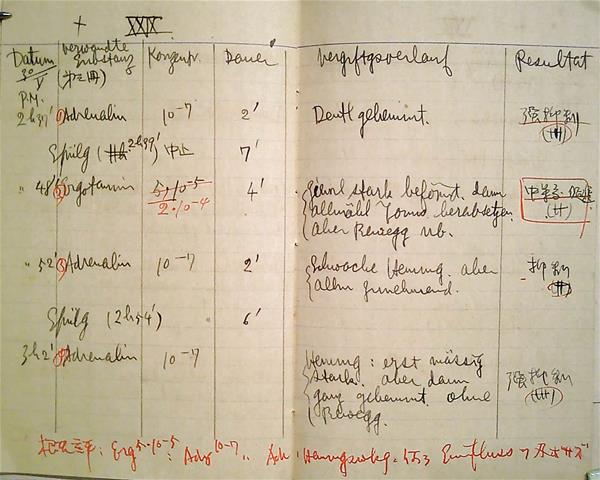 + XXIX
Datum verwandte Substanz Konzentr. Dauer Vergiftgsverlauf Resultat
30/V
P.M.
2h37' ① Adrenalin 10⁻⁷ 2' Deutl gehemmt. 強抑制
(2h39') 中止 7'
" 48' ② Ergotamin 5·10⁻⁵ 4' stark befördt. dann
2·10⁻⁴ allmähl Tonus herabsetzen. (++)
aber Bewegg
" 52' ③ Adrenalin 10⁻⁷ 2' Schwache Hemmg. aber 抑制
allm zunehmend. (++)
Spülg (2h54') 6'
3h2' ④ Adrenalin 10⁻⁷ Hemmg : erst mässig
stark. aber dann 強抑制
ganz gehemmt. ohne (+++)
Bewegg.
Erg 5·10⁻⁵ : Adr 10⁻⁷ Hemmgswkg. Einfluss ヲ及ボサズ